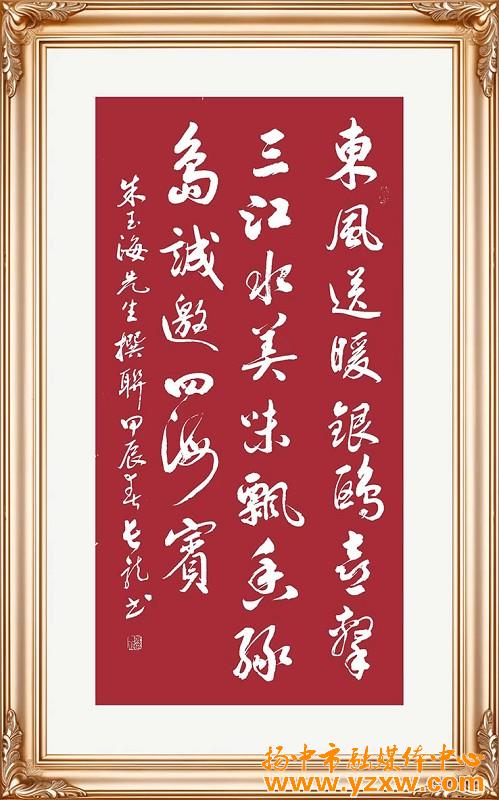 東風送暖銀鷗喜擊
三江水美味飄香綠
島誠邀四海賓
朱玉海先生撰聯甲辰春长龍书
扬中市融媒体中心
www.yzxw.com